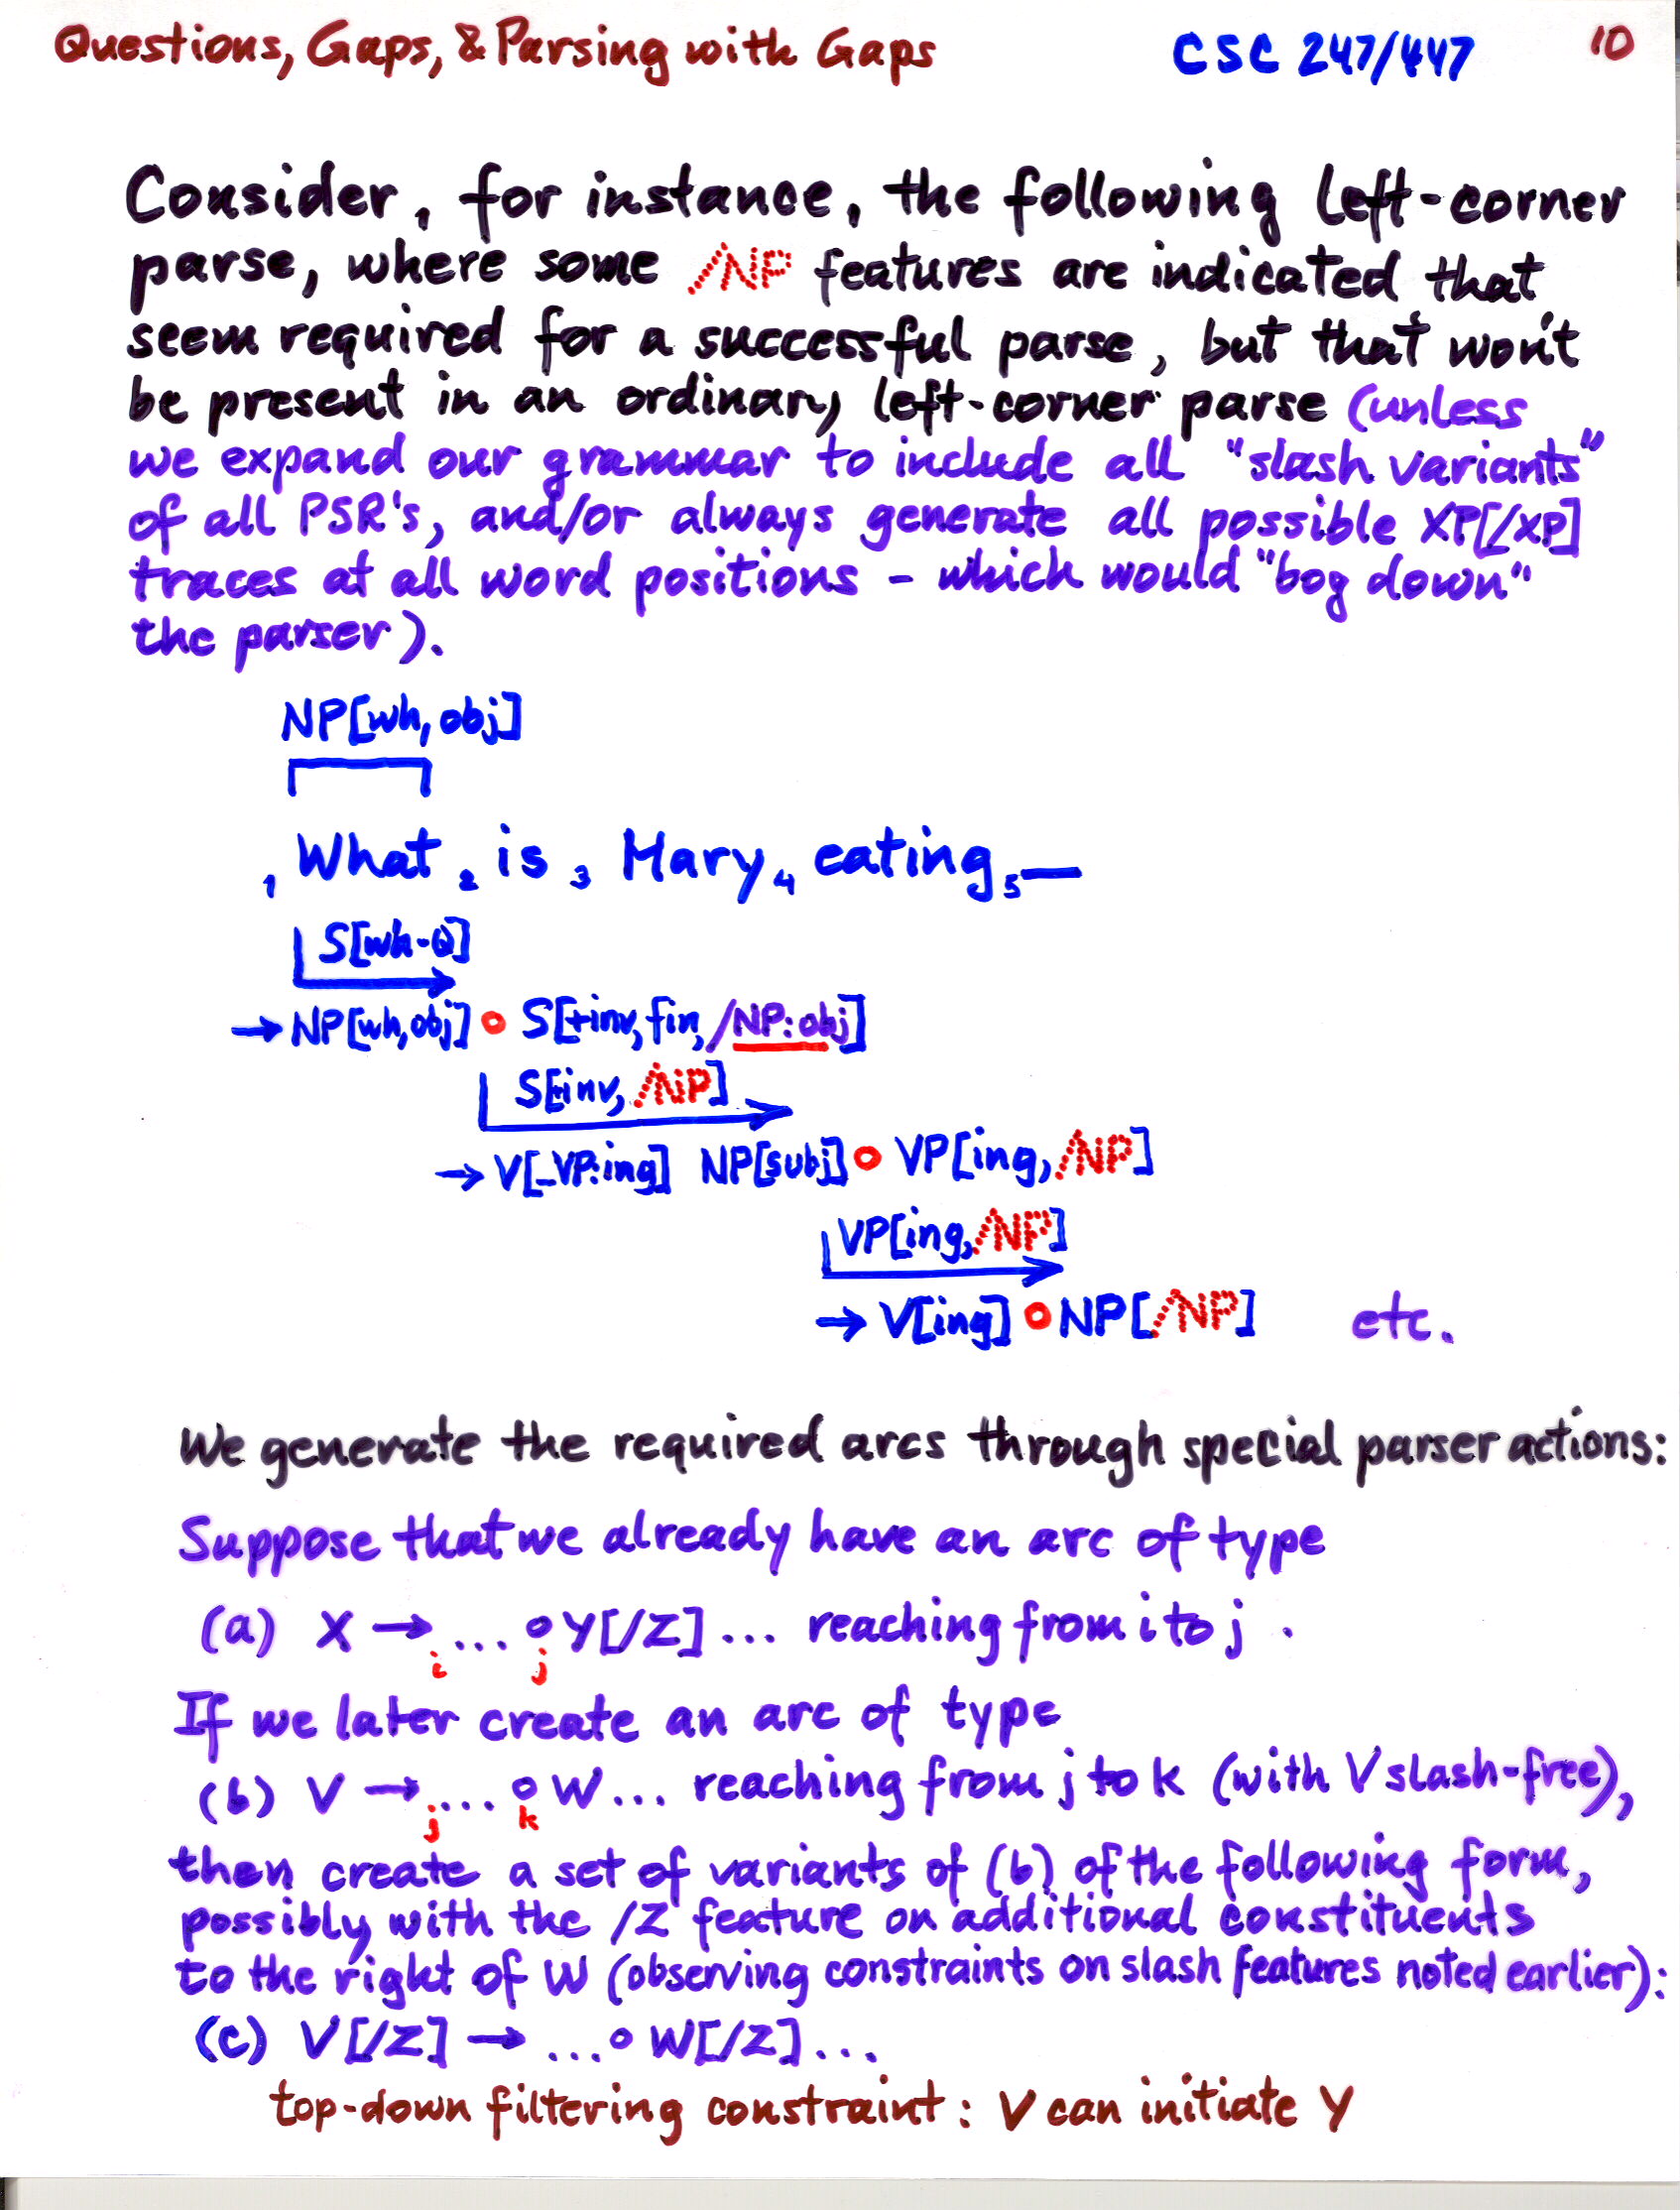 Questions, Gaps, & Parsing with Gaps CSC 247/447 10
Consider, for instance, the following left-corner
parse, where some /NP features are indicated that
seem required for a successful parse, but that won't
be present in an ordinary left-corner parse (unless
we expand our grammar to include all "slash variants"
of all PSR's, and/or always generate all possible XP[/XP]
traces at all word positions - which would "bog down"
the parser).
NP[wh, obj]
1 What 2 is 3 Mary 4 eating 5 —
S[wh-Q]
→ NP[wh, obj] o S[+inv, fin, /NP:obj]
S[+inv, /NP]
→ V[_VP:ing] NP[subj] o VP[ing, /NP]
VP[ing, /NP]
→ V[ing] o NP[/NP] etc.
We generate the required arcs through special parser actions:
Suppose that we already have an arc of type
(a) X → ... o Y[/Z] ... reaching from i to j .
i j
If we later create an arc of type
(b) V → ... o W ... reaching from j to k (with V slash-free),
j k
then create a set of variants of (b) of the following form,
possibly with the /Z feature on additional constituents
to the right of W (observing constraints on slash features noted earlier):
(c) V[/Z] → ... o W[/Z] ...
top-down filtering constraint: V can initiate Y